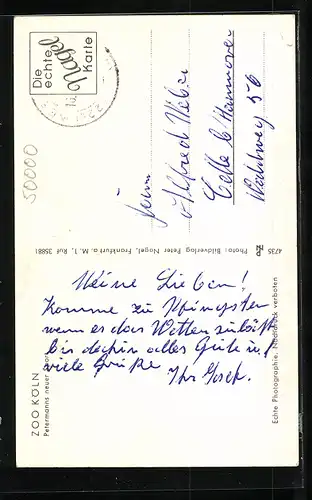 Die
echte
Nagel
Karte
Herrn
Alfred
Celle b/Hannover
56
50000
4735
Photo: Bildverlag Peter Nagel, Frankfurt a. M. 1, Ruf 35881
Meine Lieben!
Komme zu Pfingsten
wenn es das Wetter zuläßt
bis dahin alles Gute u.
viele Grüße
Ihr Josef.
ZOO KÖLN
Petermanns neuer
Echte Photographie. Nachdruck verboten